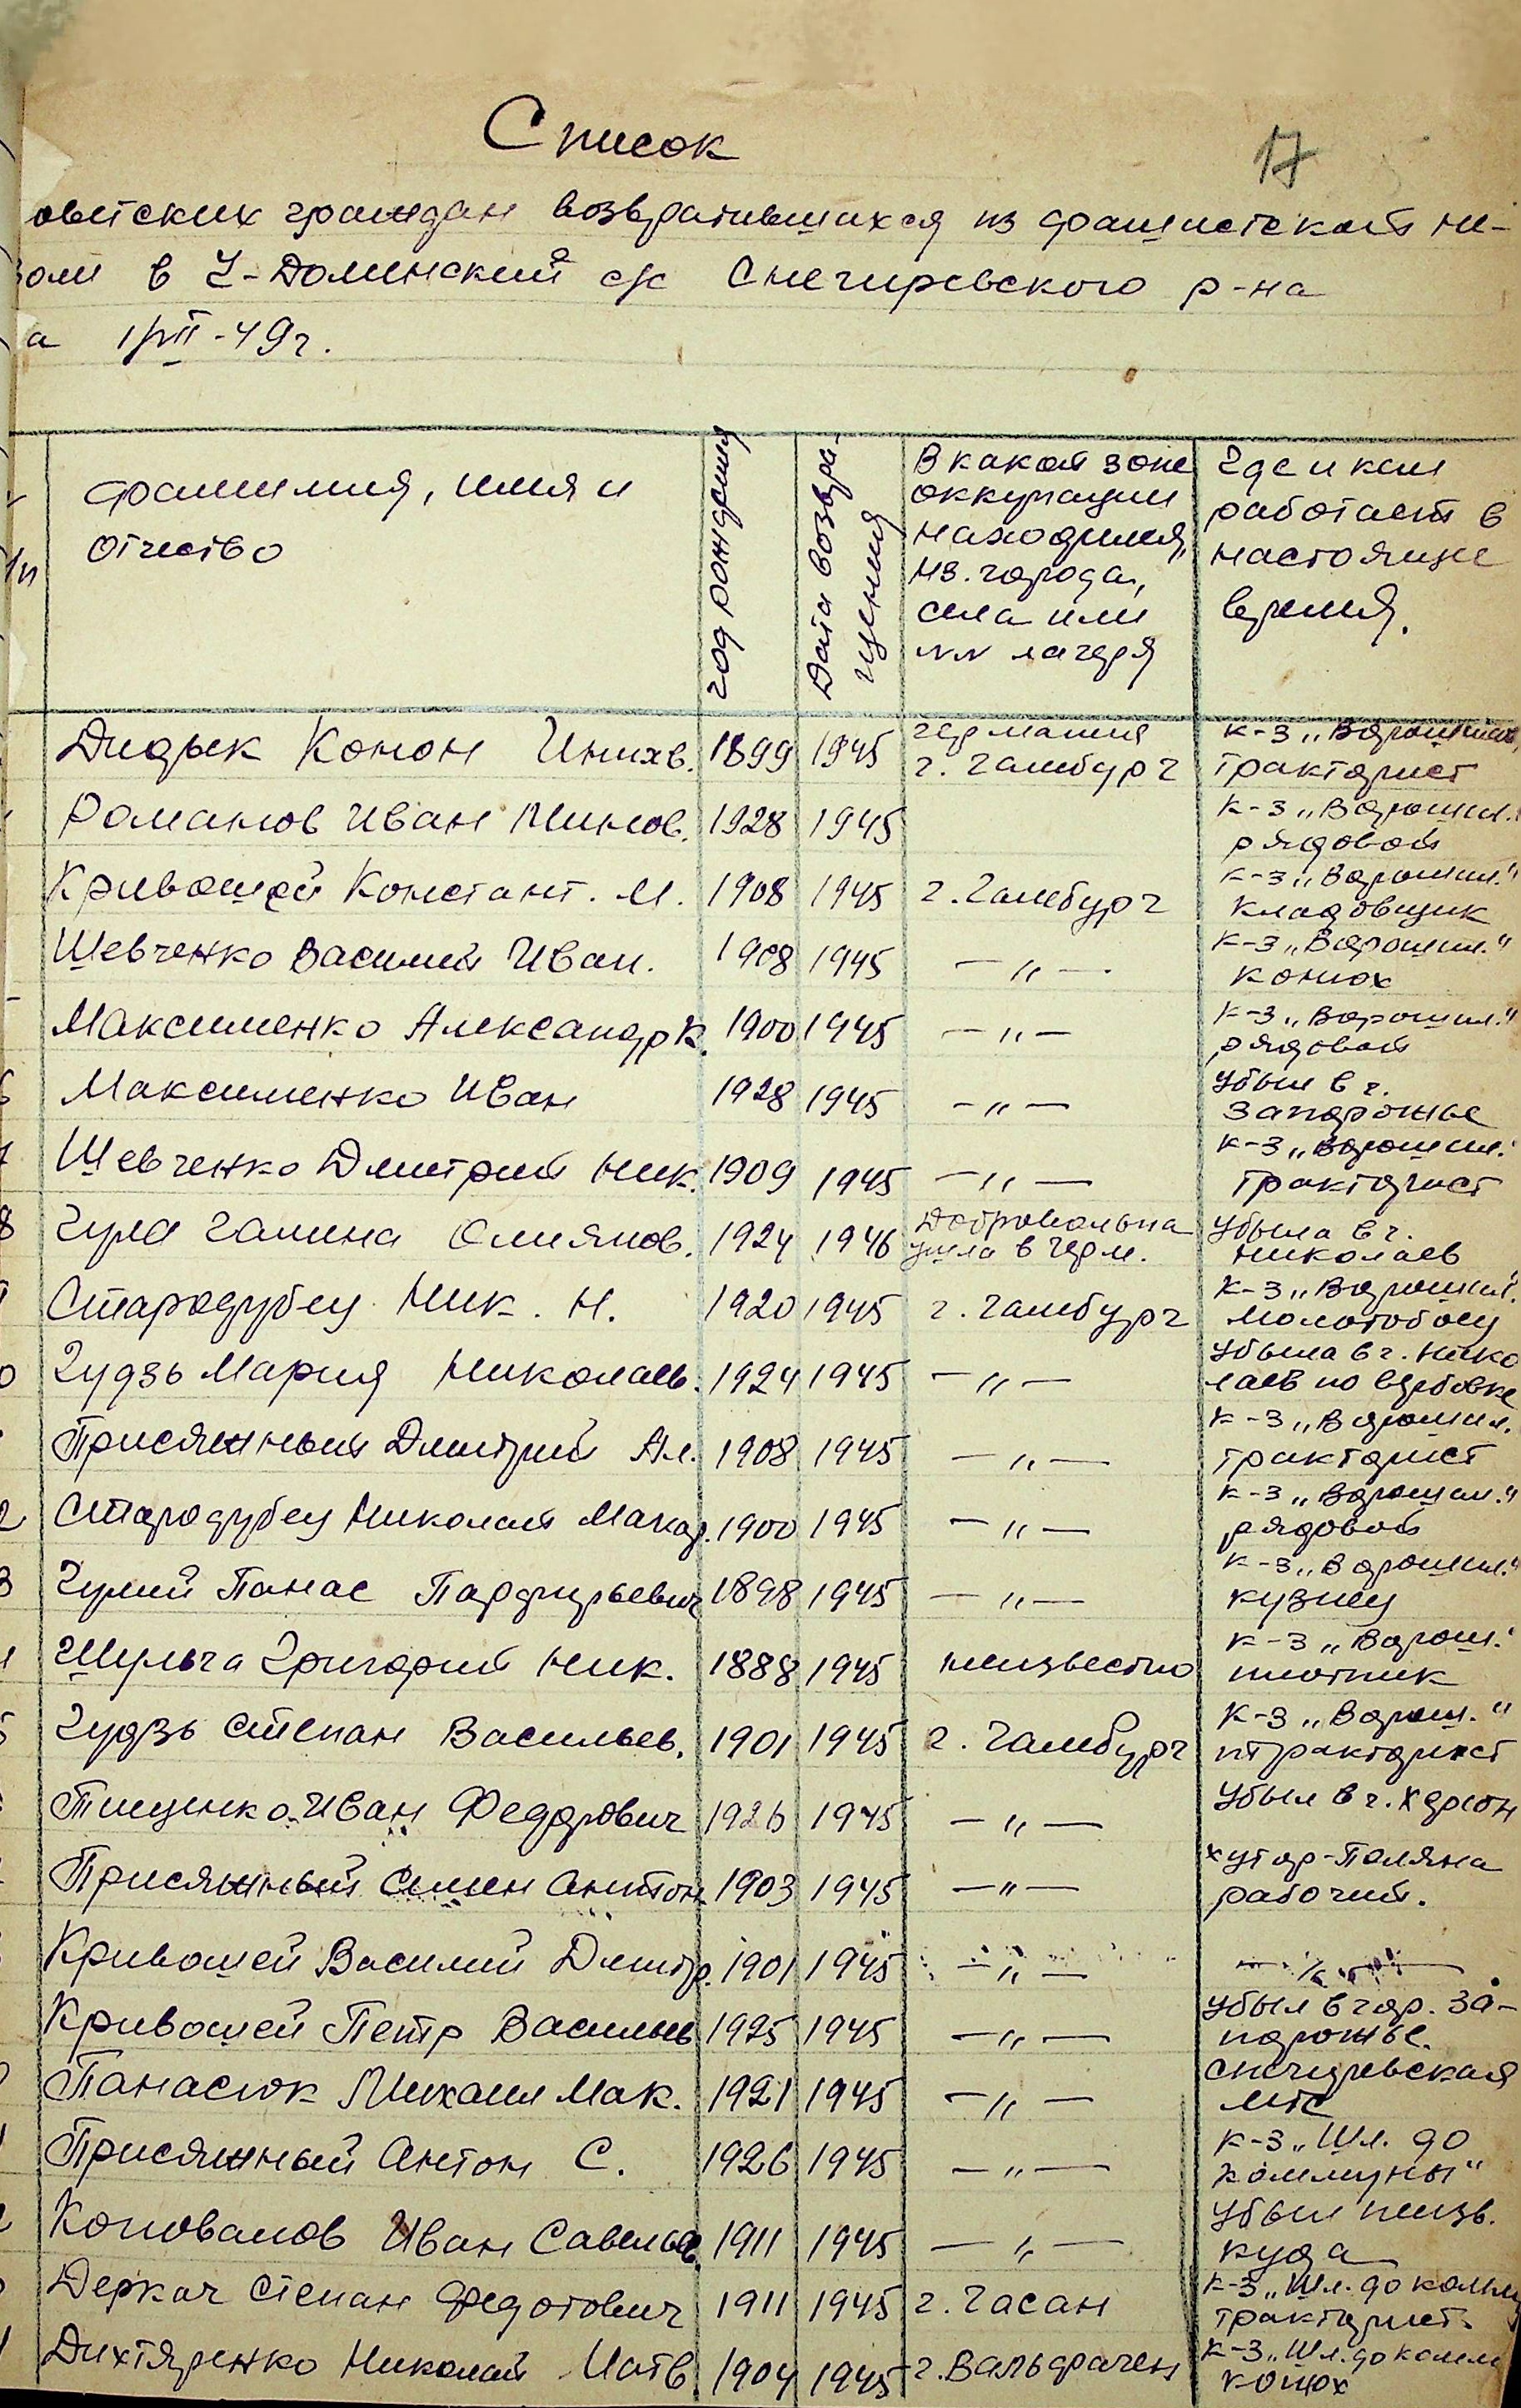 Список
17
оветских граждан возвратившихся из фашистской не-
воли в Ч-Долинский с/с Снегиревского р-на
а 1/VII-49г.
фамилия, имя и
отчество
год рождения
Дата возвра-
щения
В какой зоне
оккупации
находился,
нз. города,
села или
№№ лагеря
Где и кем
работает в
настояще
время.
Дидык Конон 1899 1945 Германия г. Гамбург к-з „Ворошилов тракторист
Романов Иван Минов. 1928 1945 к-з „Ворошил. рядовой
Кривошей Констант. М. 1908 1945 г. Гамбург к-з „Ворошил." кладовщик
Шевченко Василий Иван. 1908 1945 — „ — к-з „Ворошил." конюх
Максименко Александр К. 1900 1945 — „ — к-з „Ворошил." рядовой
6 Максименко Иван 1928 1945 — „ — убыл в г. Запорожье
7 Шевченко Дмитрий Ник. 1909 1945 — „ — к-з „Ворошил." тракторист
8 Гула Галина Омелянов. 1924 1946 Добровольна ушла в Герм. убыла в г. Николаев
9 Стародубец Ник. Н. 1920 1945 г. Гамбург к-з „Ворошил". молотобоец
0 Гудзь Мария Николаев. 1924 1945 — „ — убыла в г. Нико лаев по вербовке
Присяжный Дмитрий Ал. 1908 1945 — „ — к-з „Ворошил. тракторист
2 Стародубец Николай Макар. 1900 1945 — „ — к-з „Ворошил." рядовой
3 Гулий Панас Парфирьевич 1898 1945 — „ — к-з „Ворошил." кузнец
Шульга Григорий Ник. 1888 1945 неизвестно к-з „Ворош." плотник
5 Гудзь Степан Васильев. 1901 1945 г. Гамбург к-з „Ворош." тракторист
Тищенко Иван Федорович 1926 1945 — „ — убыл в г. Херсон
Присяжный Семен Антон. 1903 1945 — „ — хутор-Поляна рабочий.
Кривошей Василий Дмитр. 1901 1945 — „ — — „ —
Кривошей Петр Васильев 1925 1945 — „ — убыл в гор. За- порожье.
Панасюк Михаил Мак. 1921 1945 — „ — Снегиревская мтс
Присяжный Антон С. 1926 1945 — „ — к-з „Шл. до коммуны"
Коновалов Иван Савельев. 1911 1945 — „ — убыл неизв. куда
Деркач Степан Федотович 1911 1945 г. Гасан к-з „Шл. до комму тракторист.
Дихтяренко Николай 1904 1945 г. Вальдрачен к-з „Шл. до комм конюх